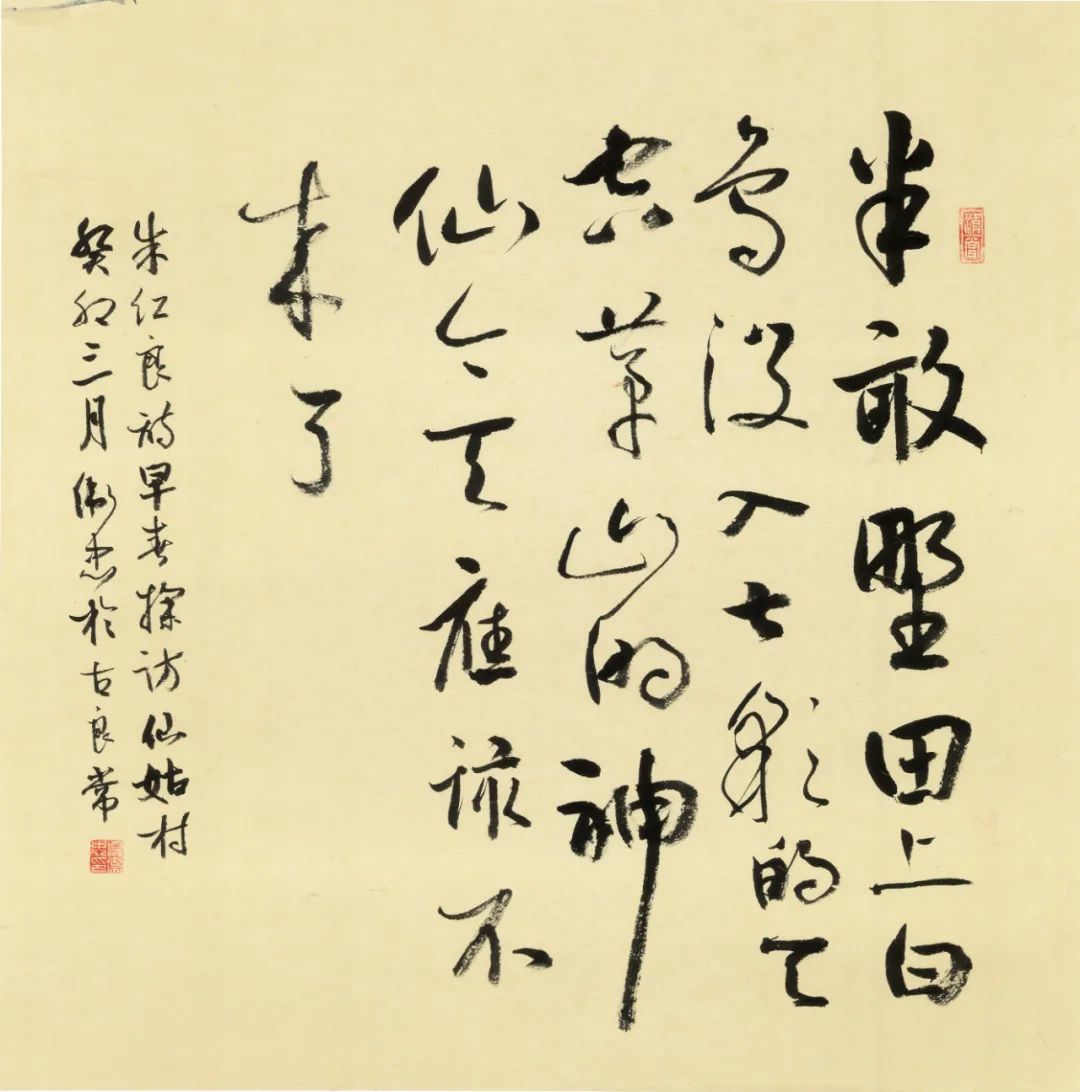 半畝野田上白
鸟没入七彩的天
空茅山的神
仙今天应该不
来了
朱红良诗早春探访仙姑村
癸卯三月衛忠於古良常